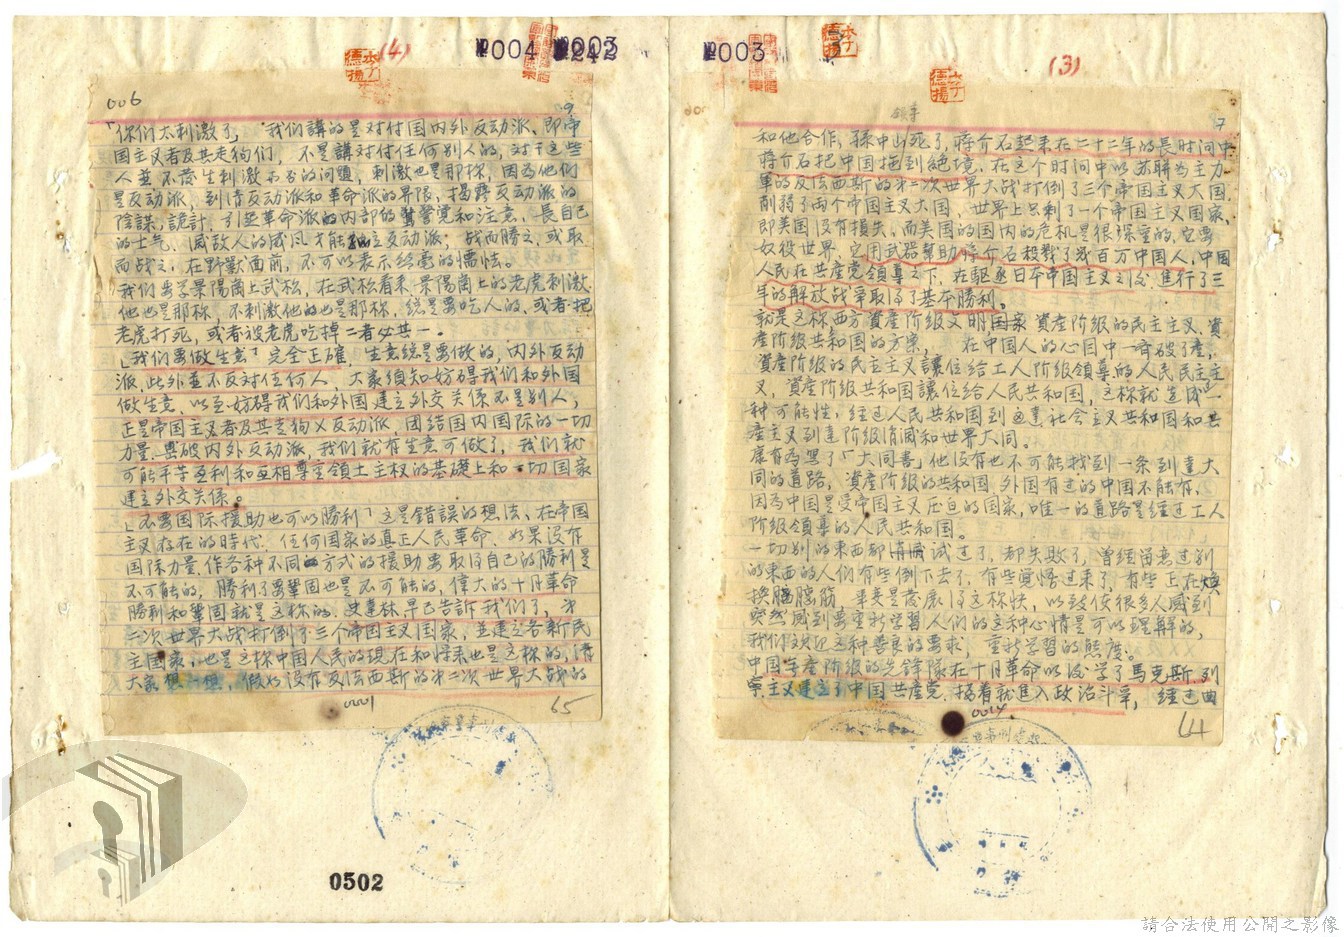 (3)
№003
7
和他合作，孫中山死了，蔣介石起來在二十二年的長时间中
蔣介石把中国拖到絶境，在这个时间中以苏聯为主力
軍的反法西斯的第二次世界大战打倒了三个帝国主义大国，
削弱了两个帝国主义大国，世界上只剩了一个帝国主义国家，
即美国没有損失，而美国的国内的危机是很深重的，它要
奴役世界，它用武器幫助蔣介石殺戮了几百万中国人，中国
人民在共産党領導之下，在驅逐日本帝国主义之后，進行了三
年的解放战爭取得了基本勝利。
就是这样西方資産阶级文明国家，資産阶级的民主主义，資
産阶级共和国的方案，在中国人的心目中一齊破了産，
資産阶级的民主主义讓位给工人阶级領導的人民民主主
义，資産阶级共和国讓位给人民共和国，这样就造成一
种可能性，經过人民共和国到达社会主义共和国和共
產主义到達阶级消滅和世界大同。
康有為寫了「大同書」他没有也不可能找到一条到達大
同的道路，資産阶级的共和国，外国有过的中国不能有，
因为中国是受帝国主义压迫的国家，唯一的道路是經过工人
阶级領導的人民共和国。
一切别的東西都試过了，都失敗了，曾經留恋过别
的東西的人们有些倒下去了，有些覚悟过来了，有些正在换
脑筋，事变是發展得这样快，以致使很多人感到
突然感到要重新学習，人们的这种心情是可以理解的，
我们欢迎这种善良的要求，重新学習的態度。
中国無産阶级的先鋒隊在十月革命以後学了馬克斯·列
寧主义建立了中国共產党，接着就進入政治斗爭，經过曲
64
(4)
№004
006
9
「你们太刺激了」我们講的是对付国内外反动派、即帝
国主义者及其走狗们，不是講对付任何别人的，对于这些
人並不發生刺激与否的问題，刺激也是那样，因為他们
是反动派，划清反动派和革命派的界限，揭露反动派的
陰謀，詭計，引起革命派的内部的警覚和注意，長自己
的士气，滅敌人的威风才能孤立反动派，战而勝之，或取
而战之，在野獸面前，不可以表示丝毫的懦怯。
我们要学景陽崗上武松，在武松看来景陽崗上的老虎刺激
他也是那样，不刺激他的也是那样，總是要吃人的，或者把
老虎打死，或者被老虎吃掉二者必其一。
「我们要做生意」完全正確，生意總是要做的，内外反动
派，此外並不反对任何人，大家須知妨碍我们和外国
做生意，以至妨碍我们和外国建立外交关係不是别人，
正是帝国主义者及其走狗义反动派，团结国内国际的一切
力量，要破内外反动派，我们就有生意可做了，我们就
可能平等互利和互相尊重領土主权的基礎上和一切国家
建立外交关係。
「不要国际援助也可以勝利」这是錯誤的想法、在帝国
主义存在的時代，任何国家的真正人民革命，如果没有
国际力量，作各种不同方式的援助要取得自己的勝利是
不可能的，勝利了要鞏固也是不可能的，偉大的十月革命
勝利和鞏固就是这样的，史達林早已告訴我们了，第
二次世界大战打倒了三个帝国主义国家，並建立各新民
主国家，也是这样中国人民的現在和将来也是这样的，請
大家想一想，假如没有反法西斯的第二次世界大战的
65
0502
請合法使用公開之影像